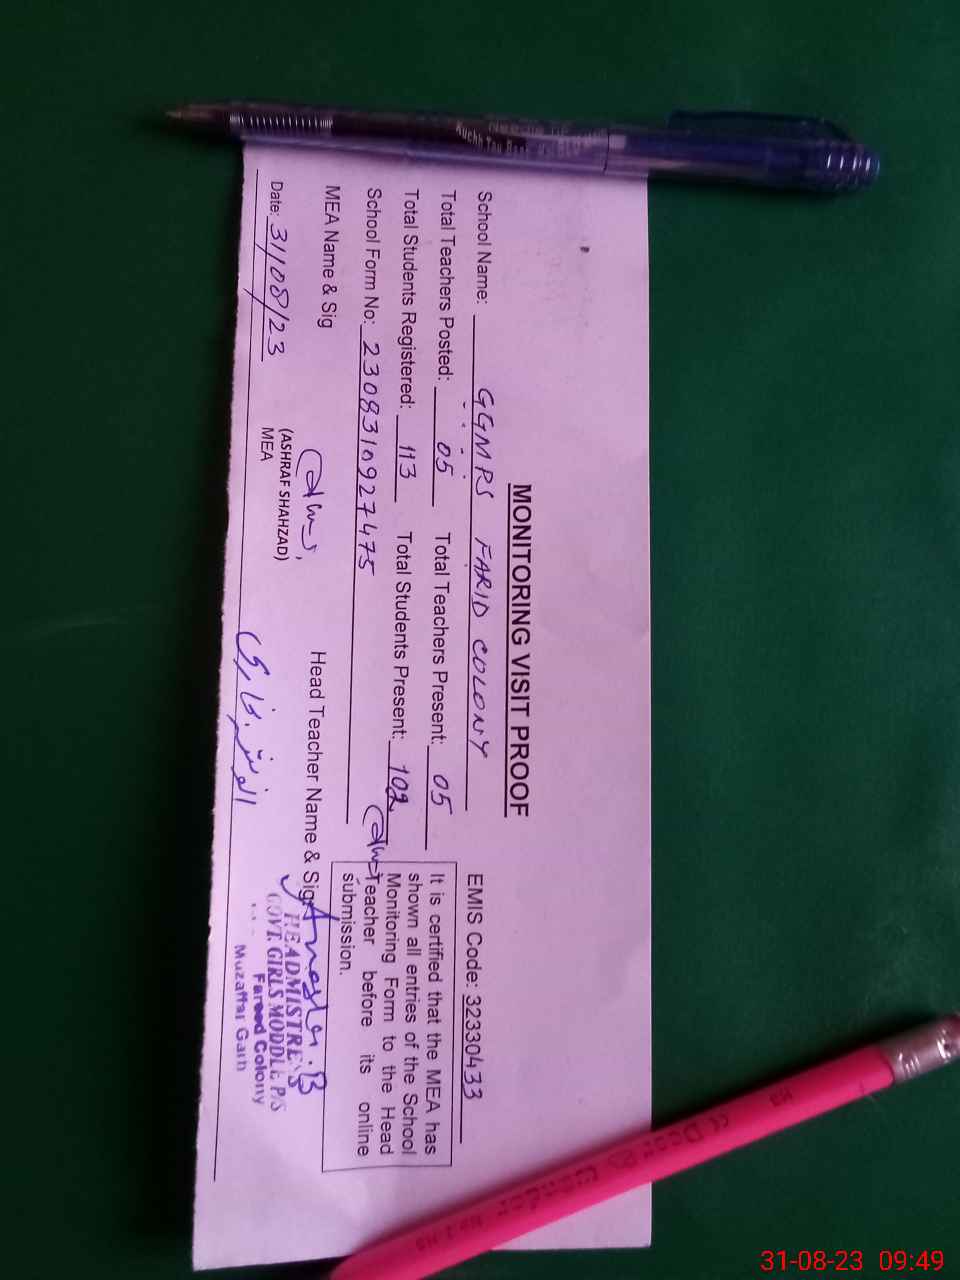 MONITORING VISIT PROOF
School Name: GGMPS FARID COLONY EMIS Code: 32330433
Total Teachers Posted: 05 Total Teachers Present: 05
Total Students Registered: 113 Total Students Present: 102
School Form No: 2308310927475
It is certified that the MEA has
shown all entries of the School
Monitoring Form to the Head
Teacher before its online
submission.
MEA Name & Sig
Head Teacher Name & Sig
(ASHRAF SHAHZAD)
MEA
Date: 31/08/23
HEADMISTRESS
GOVT. GIRLS MODDLE P/S
Fareed Colony
Muzaffar Garh
31-08-23 09:49